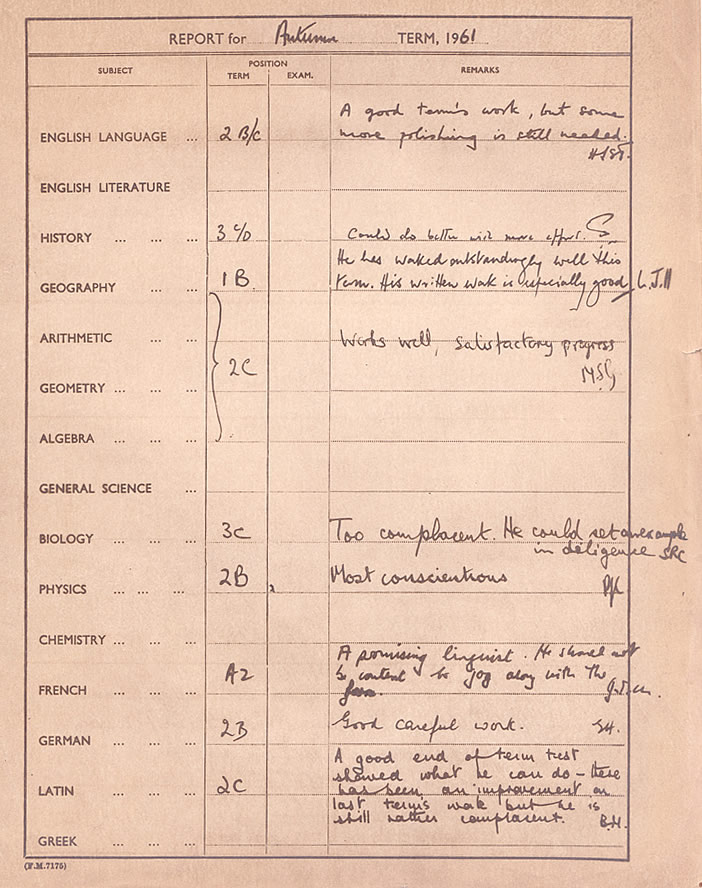 REPORT for Autumn TERM, 1961
SUBJECT POSITION REMARKS
TERM EXAM.
A good term's work, but some
ENGLISH LANGUAGE ... 2 B/C more polishing is still needed.
ENGLISH LITERATURE
HISTORY ... ... ... 3 C/D Could do better with more effort. S
He has worked outstandingly well this
GEOGRAPHY ... ... 1 B. term. His written work is especially good.
ARITHMETIC ... ... Works well, satisfactory progress
GEOMETRY ... ... ... 2C MSG
ALGEBRA ... ... ...
GENERAL SCIENCE ...
BIOLOGY ... ... ... 3C Too complacent. He could set an example
in diligence SRC
PHYSICS ... ... ... 2B Most conscientious
CHEMISTRY ... ... ...
A promising linguist. He should not
FRENCH ... ... ... A2 be content to jog along with the
form.
GERMAN ... ... ... 2B Good careful work. SH.
A good end of term test
showed what he can do – there
LATIN ... ... ... 2C has been an improvement on
last term's work but he is
still rather complacent. B.H.
GREEK ... ... ...
(F.M.7175)